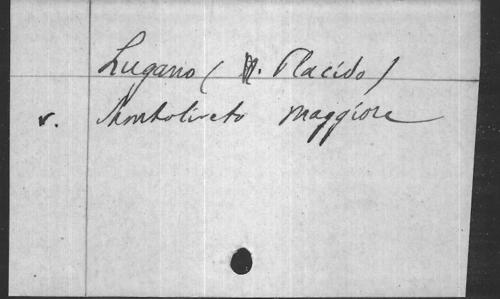 Lugano (M. Placido)
v. Montoliveto Maggiore